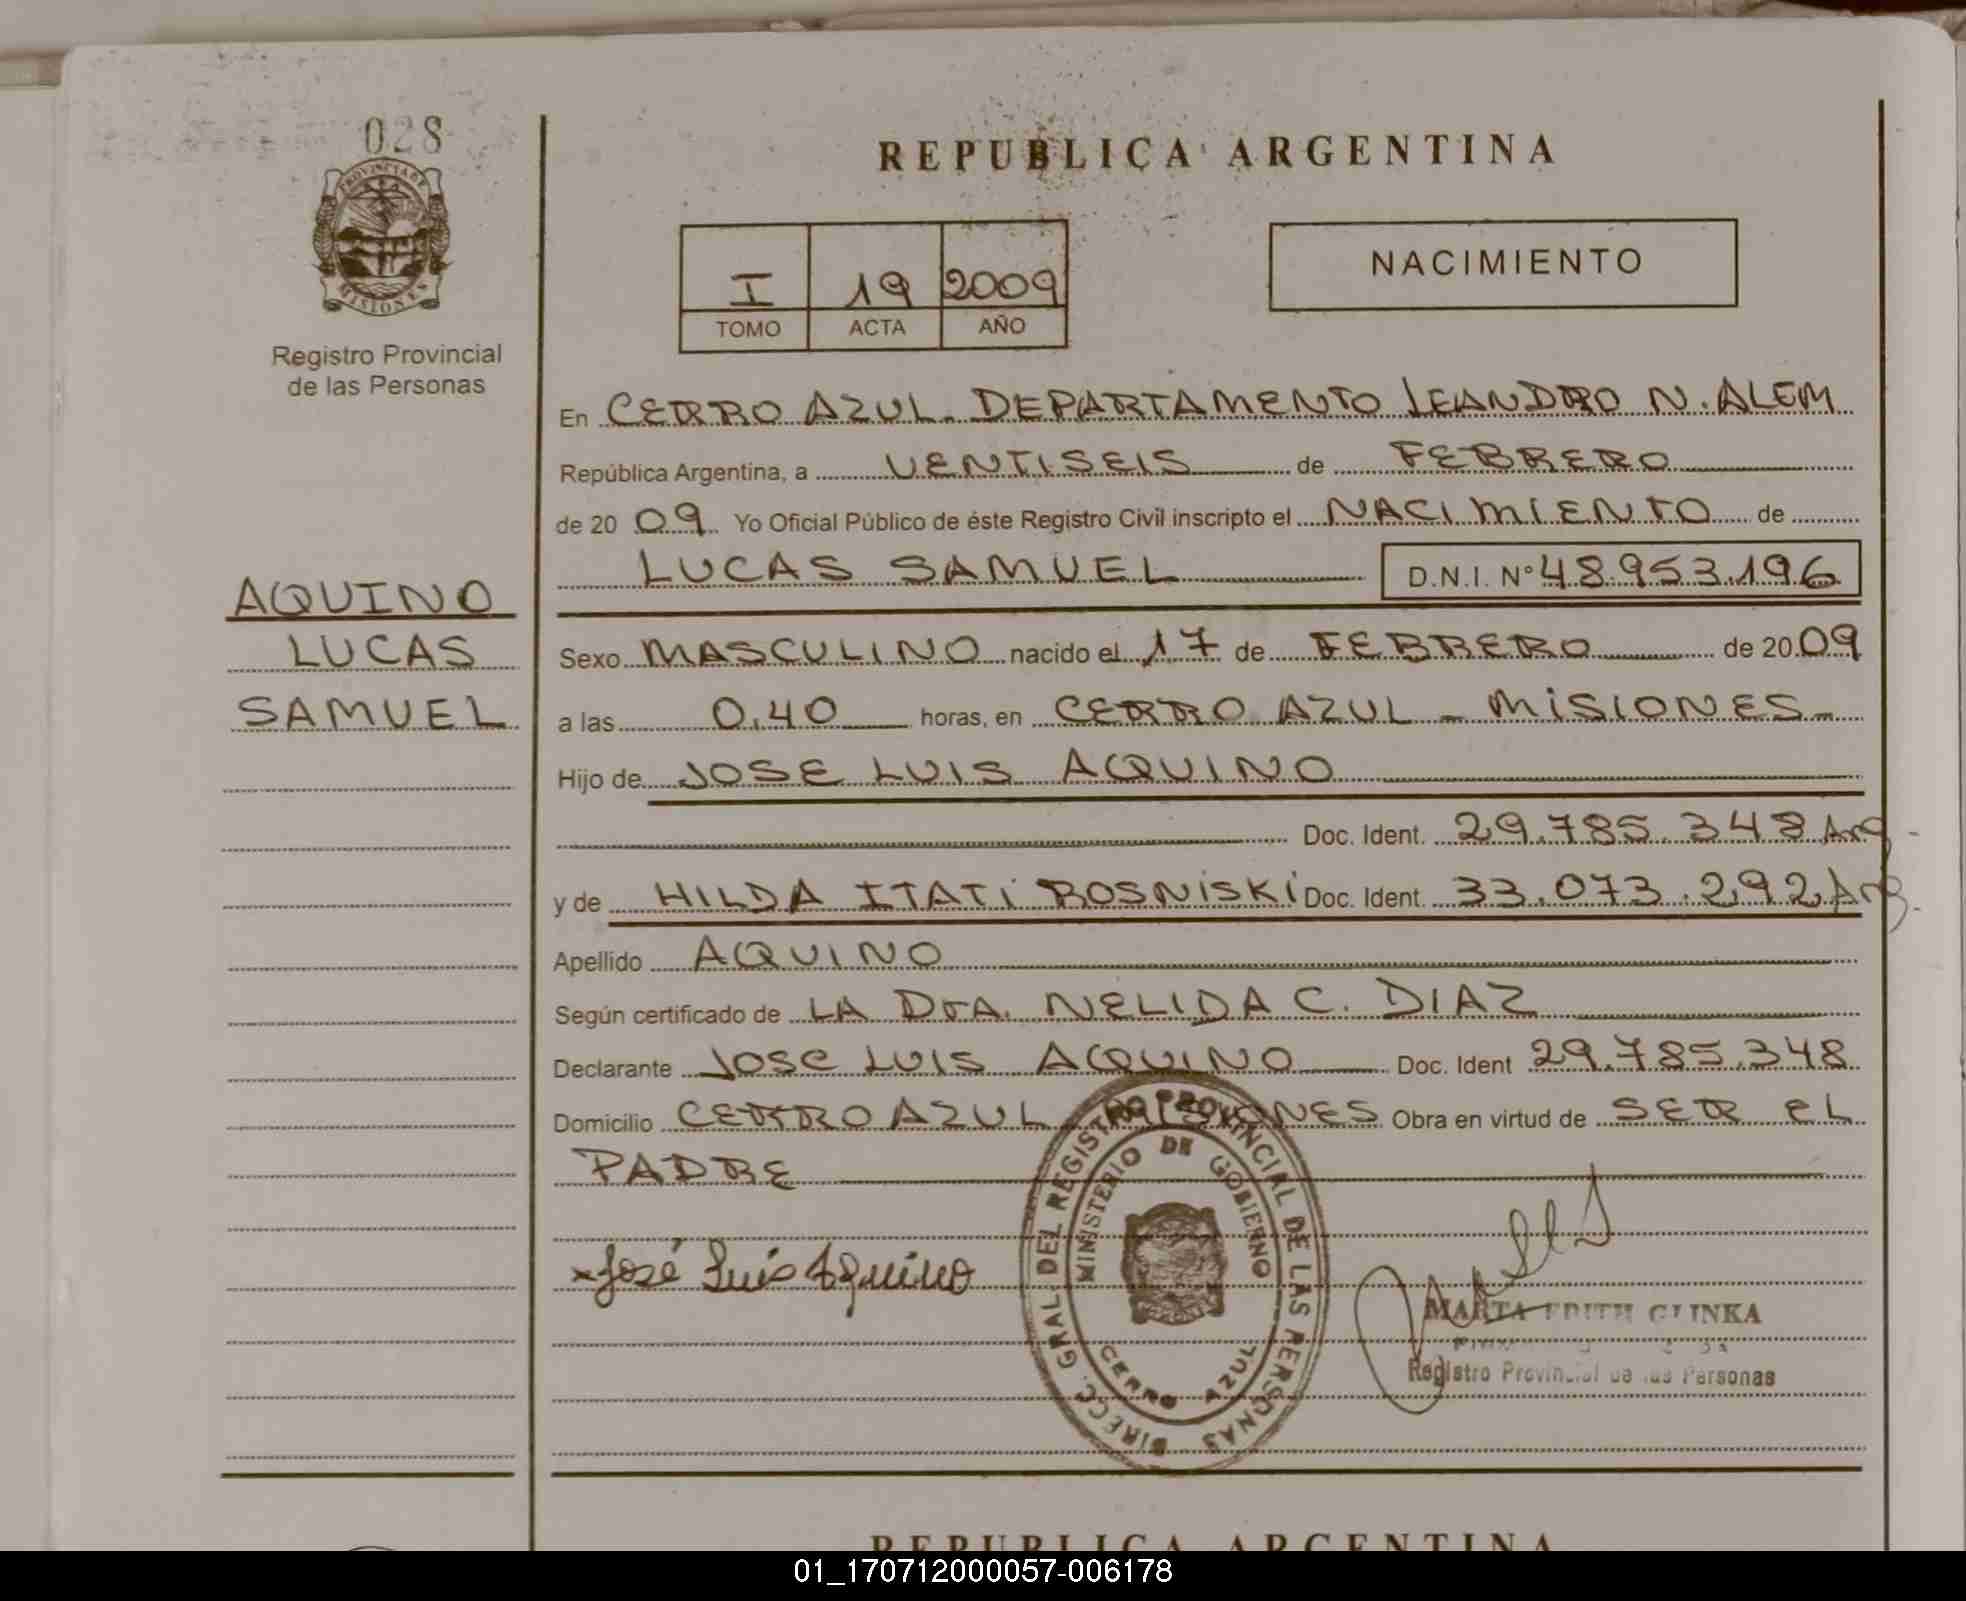 028
PROVINCIA DE
MISIONES
Registro Provincial
de las Personas
AQUINO
LUCAS
SAMUEL
REPUBLICA ARGENTINA
I 19 2009
TOMO ACTA AÑO
NACIMIENTO
En CERRO AZUL. DEPARTAMENTO LEANDRO N. ALEM
República Argentina, a VENTISEIS de FEBRERO
de 20 09 Yo Oficial Público de éste Registro Civil inscripto el NACIMIENTO de
LUCAS SAMUEL D.N.I. N° 48.953.196
Sexo MASCULINO nacido el 17 de FEBRERO de 20 09
a las 0,40 horas, en CERRO AZUL - MISIONES -
Hijo de JOSE LUIS AQUINO
Doc. Ident. 29.785.348 Arg.
y de HILDA ITATI ROSNISKI Doc. Ident. 33.073.292 Arg.
Apellido AQUINO
Según certificado de LA Dra. NELIDA C. DIAZ
Declarante JOSE LUIS AQUINO Doc. Ident 29.785.348
Domicilio CERRO AZUL MISIONES Obra en virtud de SER EL
PADRE
x José Luis Aquino
DIRECC. GRAL DEL REGISTRO PROVINCIAL DE LAS PERSONAS
MINISTERIO DE GOBIERNO
CERRO AZUL
MARTA EDITH GLINKA
Registro Provincial de las Personas
REPUBLICA ARGENTINA
01_170712000057-006178